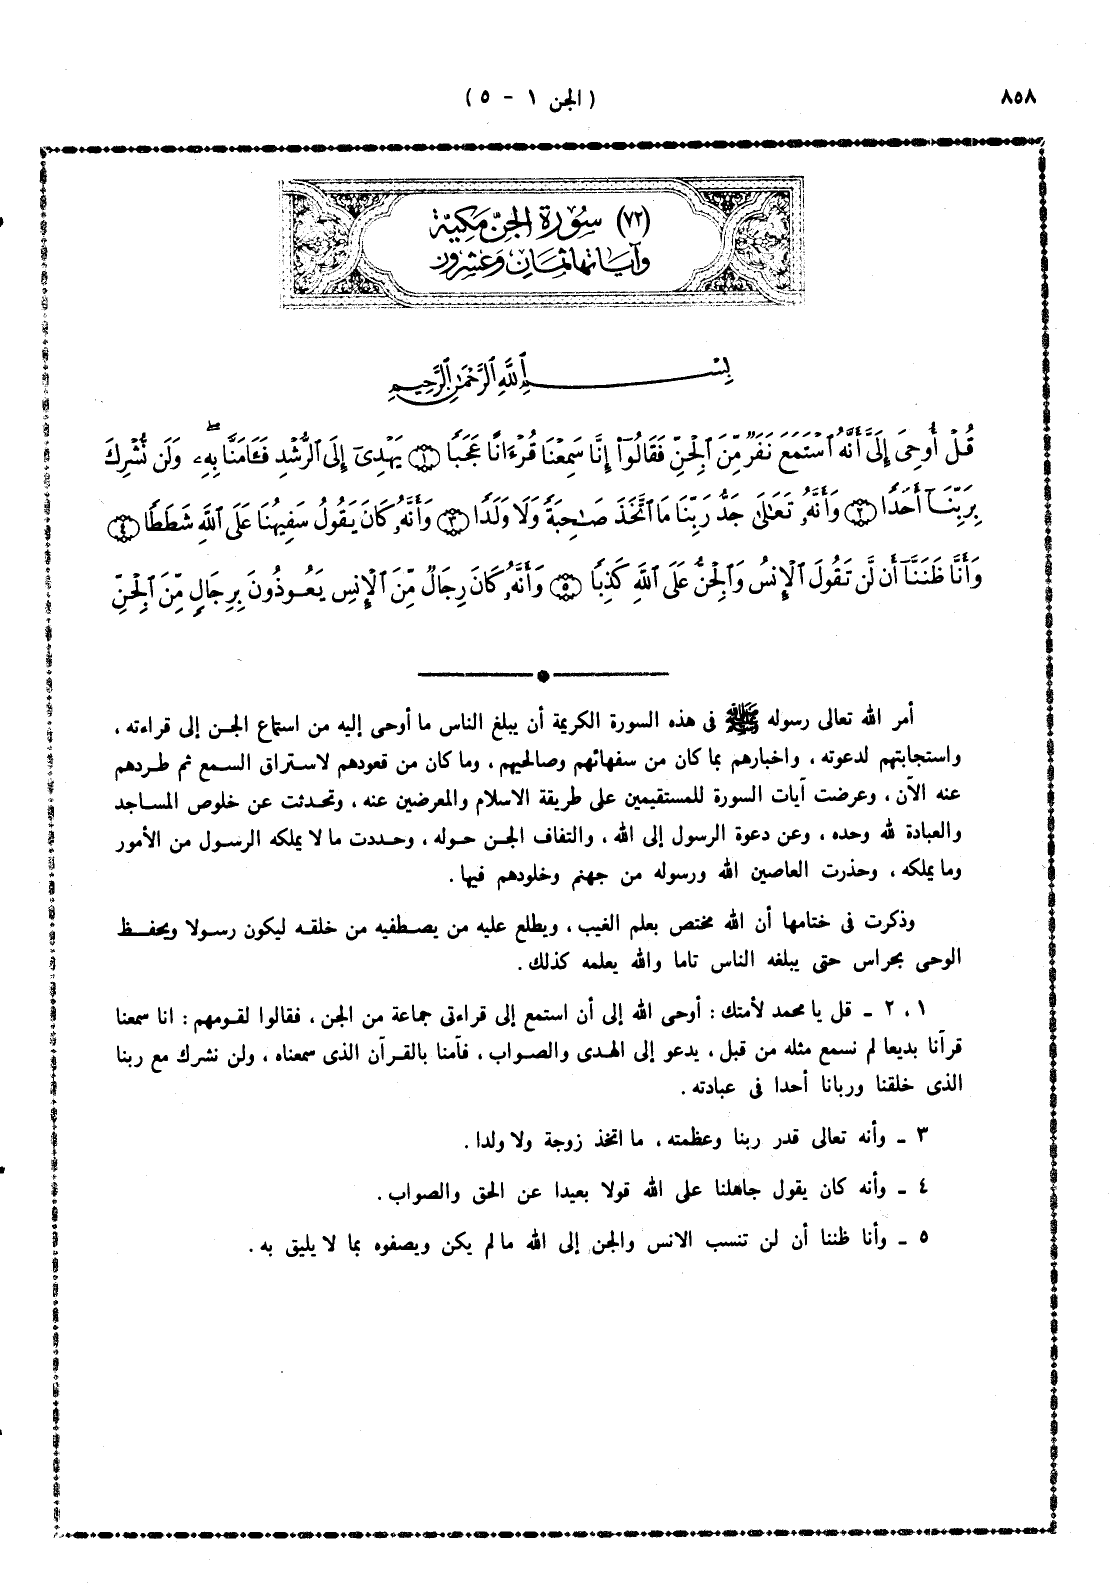 ٨٥٨
( الجن ١ - ٥ )
(٧٢) سُورَة الجنّ مَكيّة
وَآيَاتها ثَمَان وَعشرون
بِسْمِ ٱللَّهِ ٱلرَّحْمَٰنِ ٱلرَّحِيمِ
قُلْ أُوحِىَ إِلَىَّ أَنَّهُ ٱسْتَمَعَ نَفَرٌ مِّنَ ٱلْجِنِّ فَقَالُوٓا۟ إِنَّا سَمِعْنَا قُرْءَانًا عَجَبًا ۝١ يَهْدِىٓ إِلَى ٱلرُّشْدِ فَـَٔامَنَّا بِهِۦۖ وَلَن نُّشْرِكَ
بِرَبِّنَآ أَحَدًا ۝٢ وَأَنَّهُۥ تَعَٰلَىٰ جَدُّ رَبِّنَا مَا ٱتَّخَذَ صَٰحِبَةً وَلَا وَلَدًا ۝٣ وَأَنَّهُۥ كَانَ يَقُولُ سَفِيهُنَا عَلَى ٱللَّهِ شَطَطًا ۝٤
وَأَنَّا ظَنَنَّآ أَن لَّن تَقُولَ ٱلْإِنسُ وَٱلْجِنُّ عَلَى ٱللَّهِ كَذِبًا ۝٥ وَأَنَّهُۥ كَانَ رِجَالٌ مِّنَ ٱلْإِنسِ يَعُوذُونَ بِرِجَالٍ مِّنَ ٱلْجِنِّ
أمر الله تعالى رسوله ﷺ فى هذه السورة الكريمة أن يبلغ الناس ما أوحى إليه من استماع الجن إلى قراءته ،
واستجابتهم لدعوته ، واخبارهم بما كان من سفهائهم وصالحيهم ، وما كان من قعودهم لاستراق السمع ثم طردهم
عنه الآن ، وعرضت آيات السورة للمستقيمين على طريقة الاسلام والمعرضين عنه ، وتحدثت عن خلوص المساجد
والعبادة لله وحده ، وعن دعوة الرسول إلى الله ، والتفاف الجن حوله ، وحددت ما لا يملكه الرسول من الأمور
وما يملكه ، وحذرت العاصين الله ورسوله من جهنم وخلودهم فيها .
وذكرت فى ختامها أن الله مختص بعلم الغيب ، ويطلع عليه من يصطفيه من خلقه ليكون رسولا ويحفظ
الوحى بحراس حتى يبلغه الناس تاما والله يعلمه كذلك .
١ ، ٢ ـ قل يا محمد لأمتك : أوحى الله إلى أن استمع إلى قراءتى جماعة من الجن ، فقالوا لقومهم : انا سمعنا
قرآنا بديعا لم نسمع مثله من قبل ، يدعو إلى الهدى والصواب ، فآمنا بالقرآن الذى سمعناه ، ولن نشرك مع ربنا
الذى خلقنا وربانا أحدا فى عبادته .
٣ ـ وأنه تعالى قدر ربنا وعظمته ، ما اتخذ زوجة ولا ولدا .
٤ ـ وأنه كان يقول جاهلنا على الله قولا بعيدا عن الحق والصواب .
٥ ـ وأنا ظننا أن لن تنسب الانس والجن إلى الله مالم يكن ويصفوه بما لا يليق به .